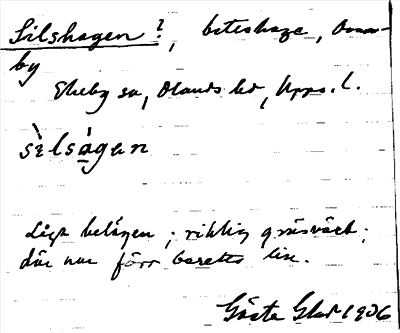 Silshagen?, beteshage, Ovan-
by
Ekeby sn, Olands hd, Upps. l.
sìlsàgan
Lågt belägen; riklig gräsväxt;
där har förr beretts lin.
Gösta 1906